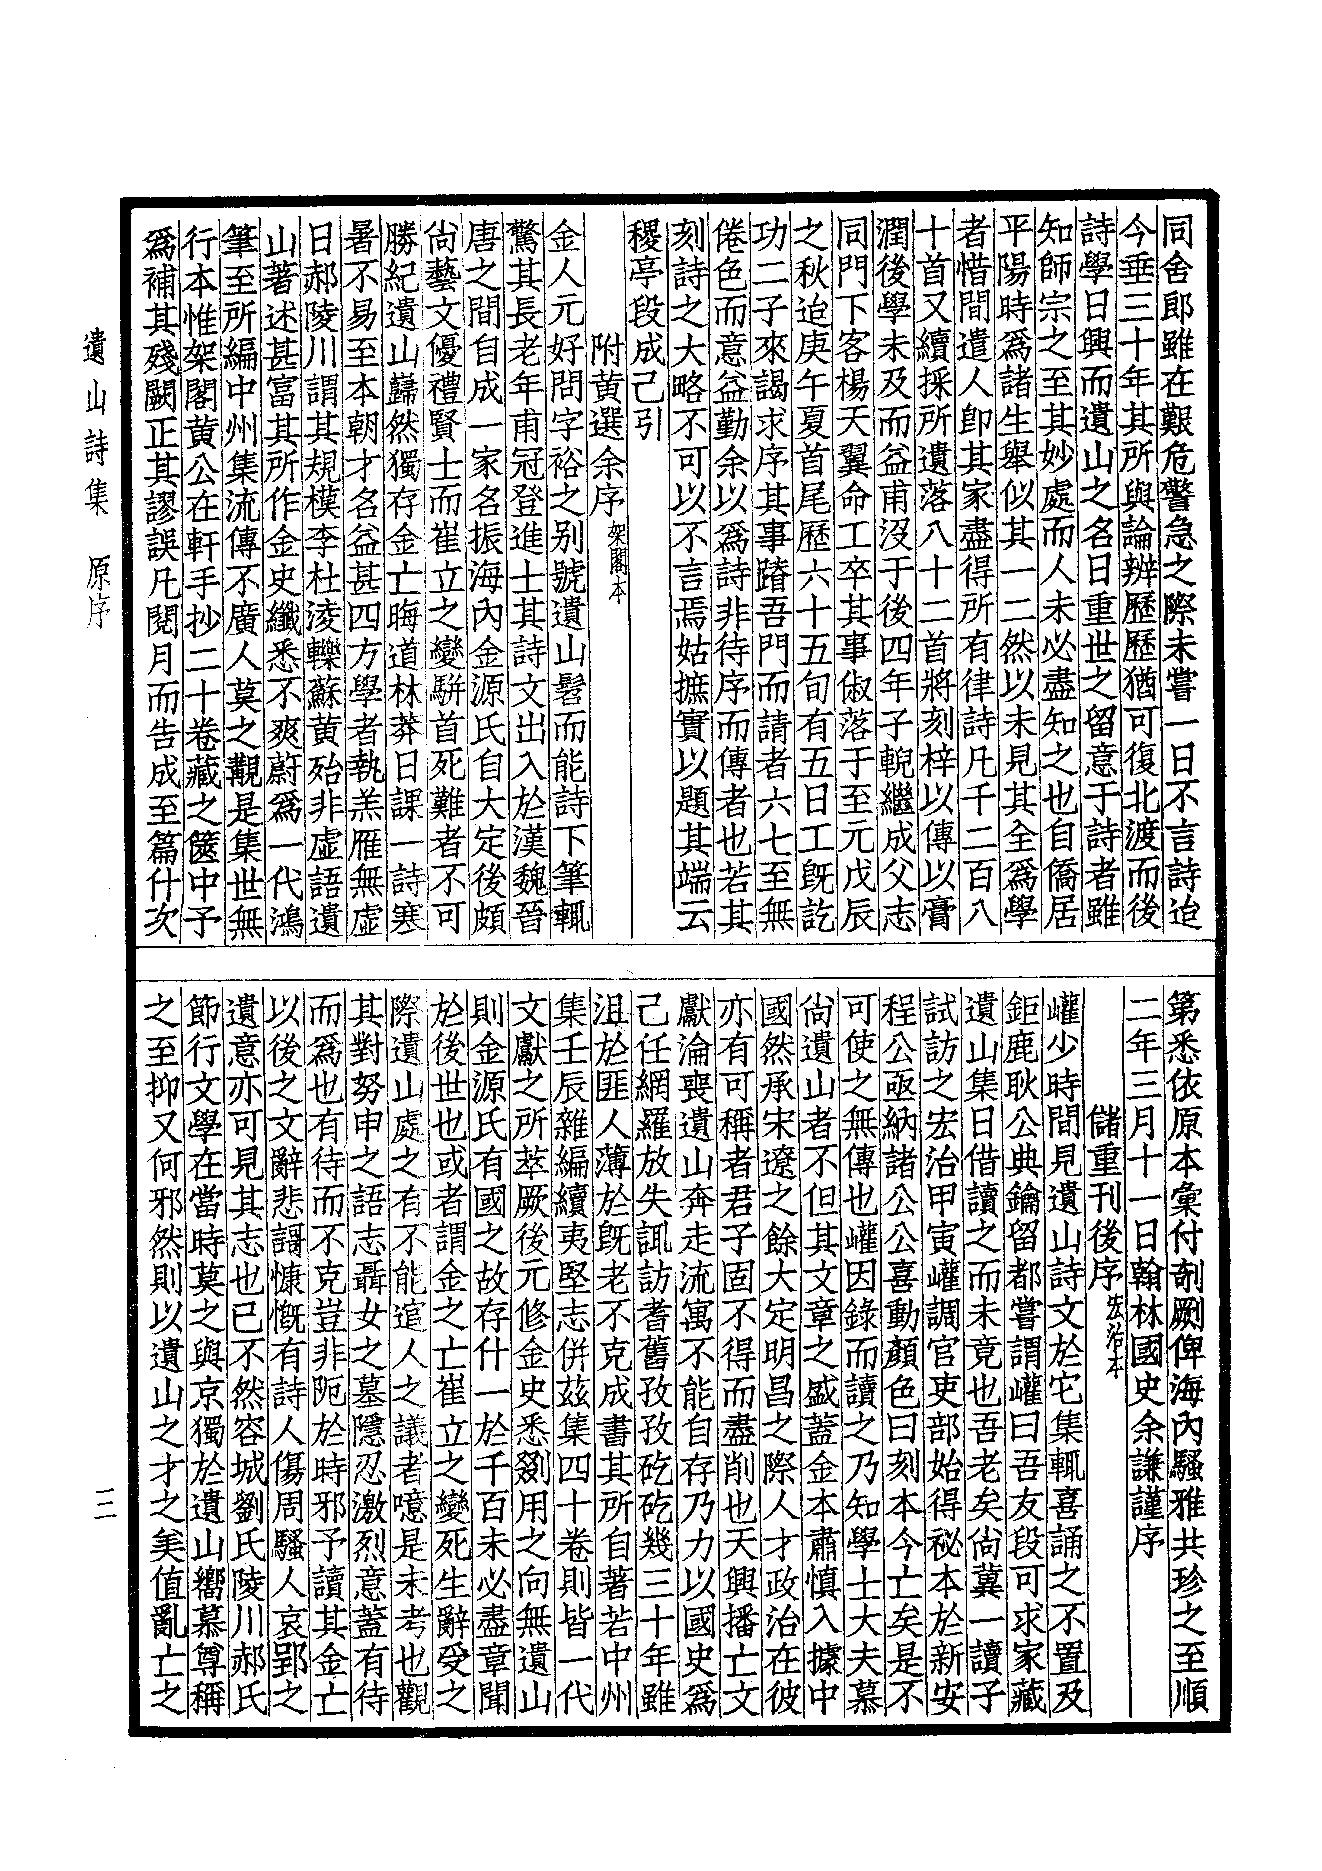 同舍郎雖在艱危警急之際未嘗一日不言詩迨
今垂三十年其所與論辨歷歷猶可復北渡而後
詩學日興而遺山之名日重世之留意于詩者雖
知師宗之至其妙處而人未必盡知之也自僑居
平陽時爲諸生舉似其一二然以未見其全爲學
者惜間遣人卽其家盡得所有律詩凡千二百八
十首又續採所遺落八十二首將刻梓以傳以膏
潤後學未及而益甫沒于後四年子輗繼成父志
同門下客楊天翼命工卒其事俶落于至元戊辰
之秋迨庚午夏首尾歷六十五旬有五日工旣訖
功二子來謁求序其事踏吾門而請者六七至無
倦色而意益勤余以爲詩非待序而傳者也若其
刻詩之大略不可以不言焉姑摭實以題其端云
稷亭段成己引
附黄選余序架閣本
金人元好問字裕之别號遺山髫而能詩下筆輒
驚其長老年甫冠登進士其詩文出入於漢魏晉
唐之間自成一家名振海內金源氏自大定後頗
尙藝文優禮賢士而崔立之變駢首死難者不可
勝紀遺山巋然獨存金亡晦道林莽日課一詩寒
暑不易至本朝才名益甚四方學者執羔雁無虛
日郝陵川謂其規模李杜淩轢蘇黃殆非虛語遺
山著述甚富其所作金史纖悉不爽蔚爲一代鴻
筆至所編中州集流傳不廣人莫之觀是集世無
行本惟架閣黄公在軒手抄二十卷藏之篋中予
爲補其殘闕正其謬誤凡閱月而告成至篇什次
第悉依原本彙付剞劂俾海內騷雅共珍之至順
二年三月十一日翰林國史余謙謹序
儲重刊後序宏治本
巏少時間見遺山詩文於它集輒喜誦之不置及
鉅鹿耿公典鑰留都嘗謂巏曰吾友段可求家藏
遺山集日借讀之而未竟也吾老矣尙冀一讀子
試訪之宏治甲寅巏調官吏部始得祕本於新安
程公亟納諸公公喜動顏色曰刻本今亡矣是不
可使之無傳也巏因錄而讀之乃知學士大夫慕
尙遺山者不但其文章之盛蓋金本肅慎入據中
國然承宋遼之餘大定明昌之際人才政治在彼
亦有可稱者君子固不得而盡削也天興播亡文
獻淪喪遺山奔走流寓不能自存乃力以國史爲
己任網羅放失訊訪耆舊孜孜矻矻幾三十年雖
沮於匪人薄於旣老不克成書其所自著若中州
集壬辰雜編續夷堅志併茲集四十卷則皆一代
文獻之所萃厥後元修金史悉劉用之向無遺山
則金源氏有國之故存什一於千百未必盡章聞
於後世也或者謂金之亡崔立之變死生辭受之
際遺山處之有不能逭人之議者噫是未考也觀
其對努申之語志聶女之墓隱忍激烈意蓋有待
而爲也有待而不克豈非阨於時邪予讀其金亡
以後之文辭悲謌慷慨有詩人傷周騷人哀郢之
遺意亦可見其志也已不然容城劉氏陵川郝氏
節行文學在當時莫之與京獨於遺山嚮慕尊稱
之至抑又何邪然則以遺山之才之美值亂亡之
遺山詩集 原序
三